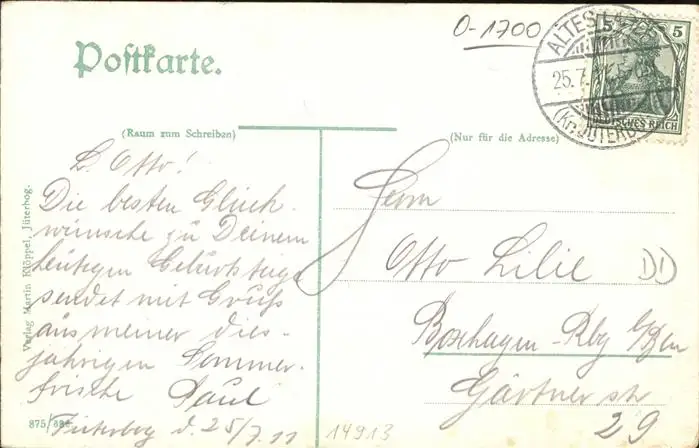 Postkarte.
O-1700
ALTES LAGER
25.7.
(Kr. JÜTERBOG)
5 5
DEUTSCHES REICH
(Raum zum Schreiben)
(Nur für die Adresse)
L. Otto!
Die besten Glück-
wünsche zu Deinem
heutigen Geburtstage
sendet mit Gruß
aus meiner dies-
jährigen Sommer-
frische Paul
Jüterbog d. 25/7.11
Herrn
Otto Lilie
Boxhagen-Rbg b/Bln
Gärtnerstr
29
DI
Verlag Martin Klöppel, Jüterbog.
875/
14913